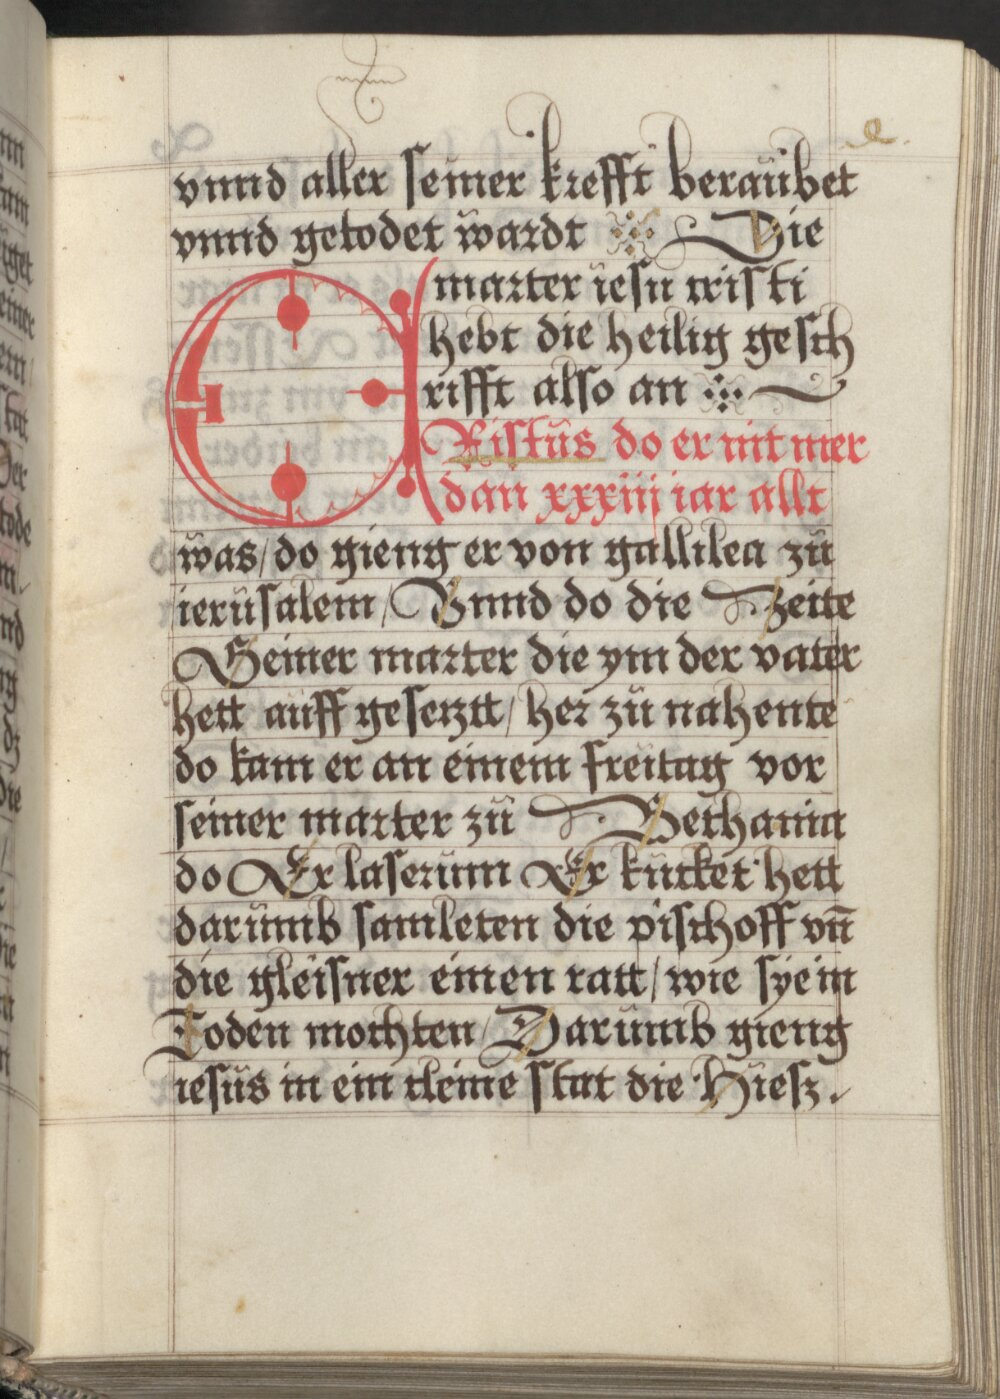 e.
vnnd aller seiner krefft beraübet
vnnd getodet wardt Die
marter iesu cristi
hebt die heilig gesch
rifft also an
CRistüs do er nit mer
dan xxxiiij iar allt
was/ do gieng er von gallilea zü
ierüsalem/ Vnnd do die Zeite
Seiner marter die ym der vater
hett aüff gesetztt/ her zü nahente
do kam er an einem freitag vor
seiner marter zü Bethania
do Er laserüm Er kücket hett
darümb samleten die pischoff vn̄
die gleisner einen ratt/ wie sye in
Toden mochten/ Darümb gieng
iesüs in ein cleine stat die Hiesz